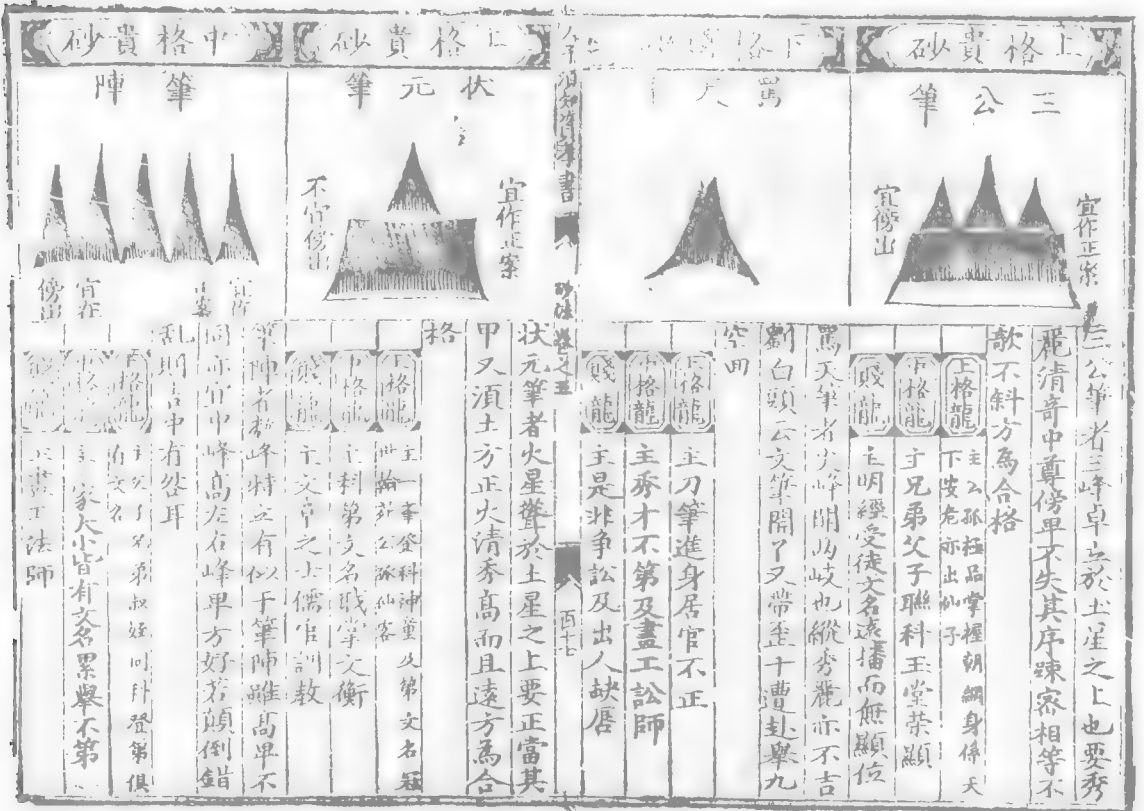 上格貴砂
三公筆
宜作正案
宜傍出
三公筆者三峰卓立於土星之上也要秀
麗清奇中尊傍卑不失其序踈密相等不
欹不斜方為合格
上格龍
主公孤極品掌握朝綱身係天
下安危亦出仙子
中格龍
主兄弟父子聯科玉堂榮顯
賤龍
主明經受徒文名遠播而無顯位
下格貴砂
罵天
罵天筆者尖峰開兩岐也縱秀麗亦不吉
劉白頭云文筆開丫又帶歪十遭赴舉九
空回
上格龍
主刀筆進身居官不正
中格龍
主秀才不第及畫工訟師
賤龍
主是非爭訟及出人缺唇
人子須知資孝書
砂法
卷之五
酉十七
上格貴砂
状元筆
宜作正案
不宜傍出
状元筆者火星聳於土星之上要正當其
甲又須土方正火清秀高而且遠方為合
格
上格龍
主一舉登科神童及第文名冠
世
仙客
中格龍
主科第文名職掌文衡
賤龍
主文章之士儒官訓教
中格貴砂
筆陣
宜作
正案
宜在
傍出
筆陣者數峰特立有似于筆陣雖高卑不
同亦宜中峰高左右峰卑方好若顛倒錯
乱則吉中有咎耳
上格龍
主父子兄弟叔姪同科登第俱
有文名
中格龍
家大小皆有文名累舉不第
賤龍
法師